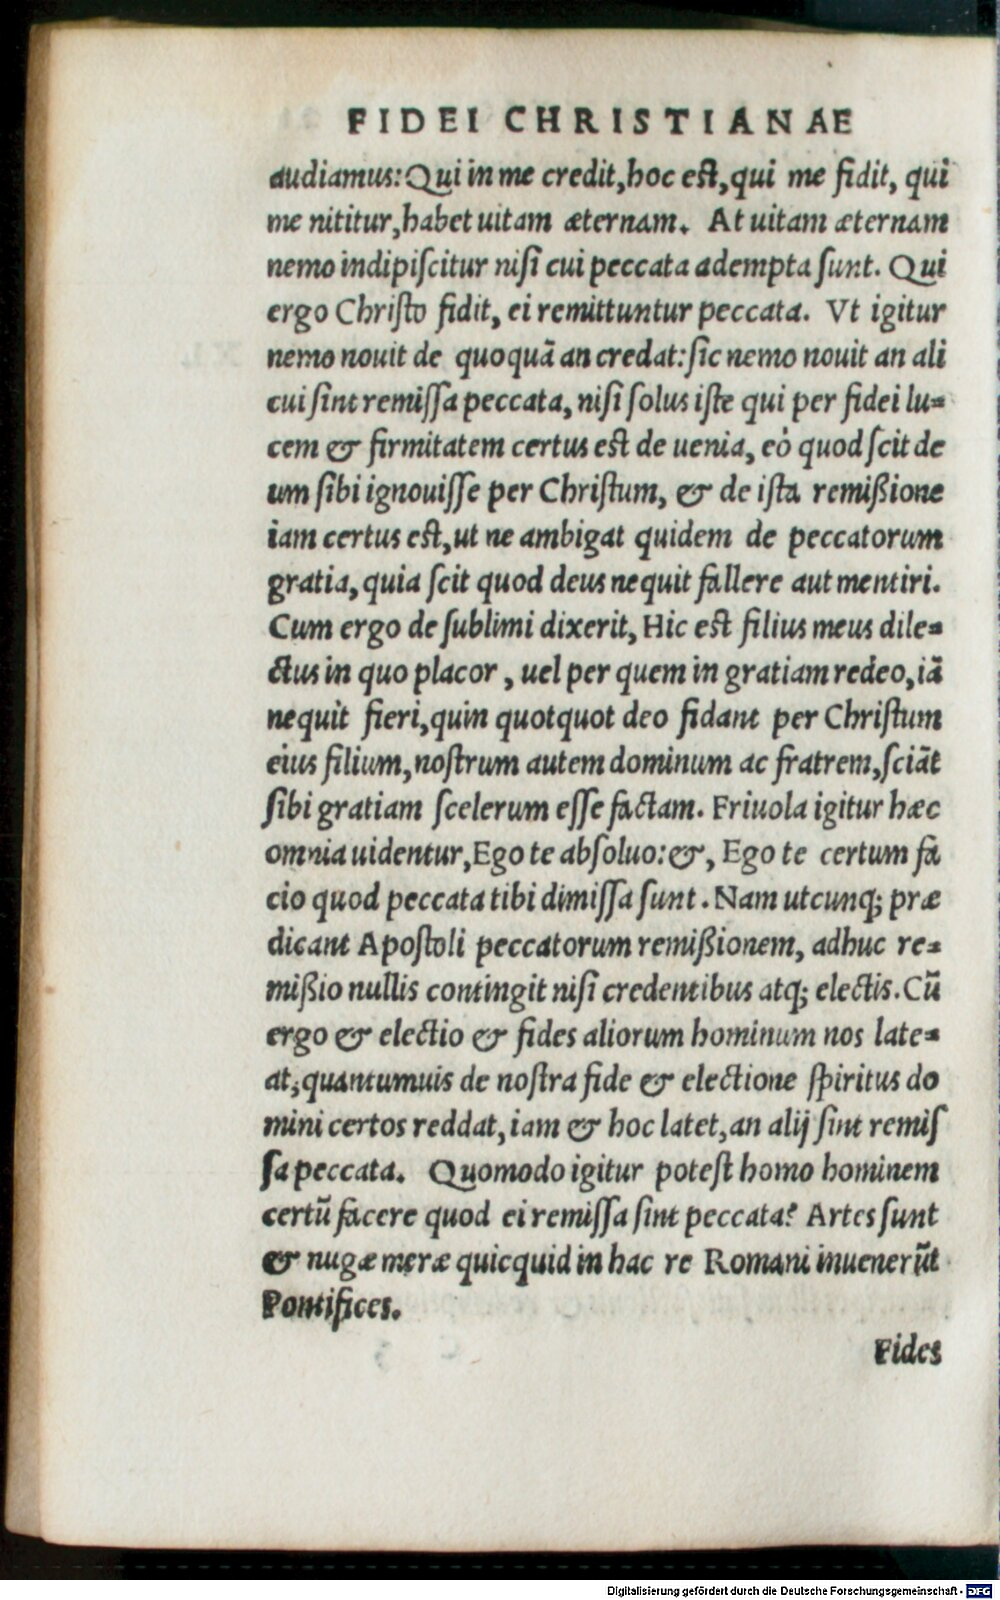 FIDEI CHRISTIANAE
audiamus: Qui in me credit, hoc est, qui me fidit, qui
me nititur, habet uitam æternam. At uitam æternam
nemo indipiſcitur niſi cui peccata adempta ſunt. Qui
ergo Chriſto fidit, ei remittuntur peccata. Vt igitur
nemo nouit de quoquā an credat: ſic nemo nouit an ali
cui ſint remiſſa peccata, niſi ſolus iſte qui per fidei lu=
cem & firmitatem certus eſt de uenia, eò quod ſcit de
um ſibi ignouiſſe per Chriſtum, & de iſta remißione
iam certus eſt, ut ne ambigat quidem de peccatorum
gratia, quia ſcit quod deus nequit fallere aut mentiri.
Cum ergo de ſublimi dixerit, Hic eſt filius meus dile=
ctus in quo placor, uel per quem in gratiam redeo, iā
nequit fieri, quin quotquot deo fidant per Chriſtum
eius filium, noſtrum autem dominum ac fratrem, ſciāt
ſibi gratiam ſcelerum eſſe factam. Friuola igitur hæc
omnia uidentur, Ego te abſoluo: &, Ego te certum fa
cio quod peccata tibi dimiſſa ſunt. Nam utcunq; præ
dicant Apoſtoli peccatorum remißionem, adhuc re=
mißio nullis contingit niſi credentibus atq; electis. Cū
ergo & electio & fides aliorum hominum nos late=
at, quantumuis de noſtra fide & electione ſpiritus do
mini certos reddat, iam & hoc latet, an alij ſint remiſ
ſa peccata. Quomodo igitur poteſt homo hominem
certū facere quod ei remiſſa ſint peccata? Artes ſunt
& nugæ meræ quicquid in hac re Romani inuenerūt
Pontifices.
Fides
Digitalisierung gefördert durch die Deutsche Forschungsgemeinschaft - DFG